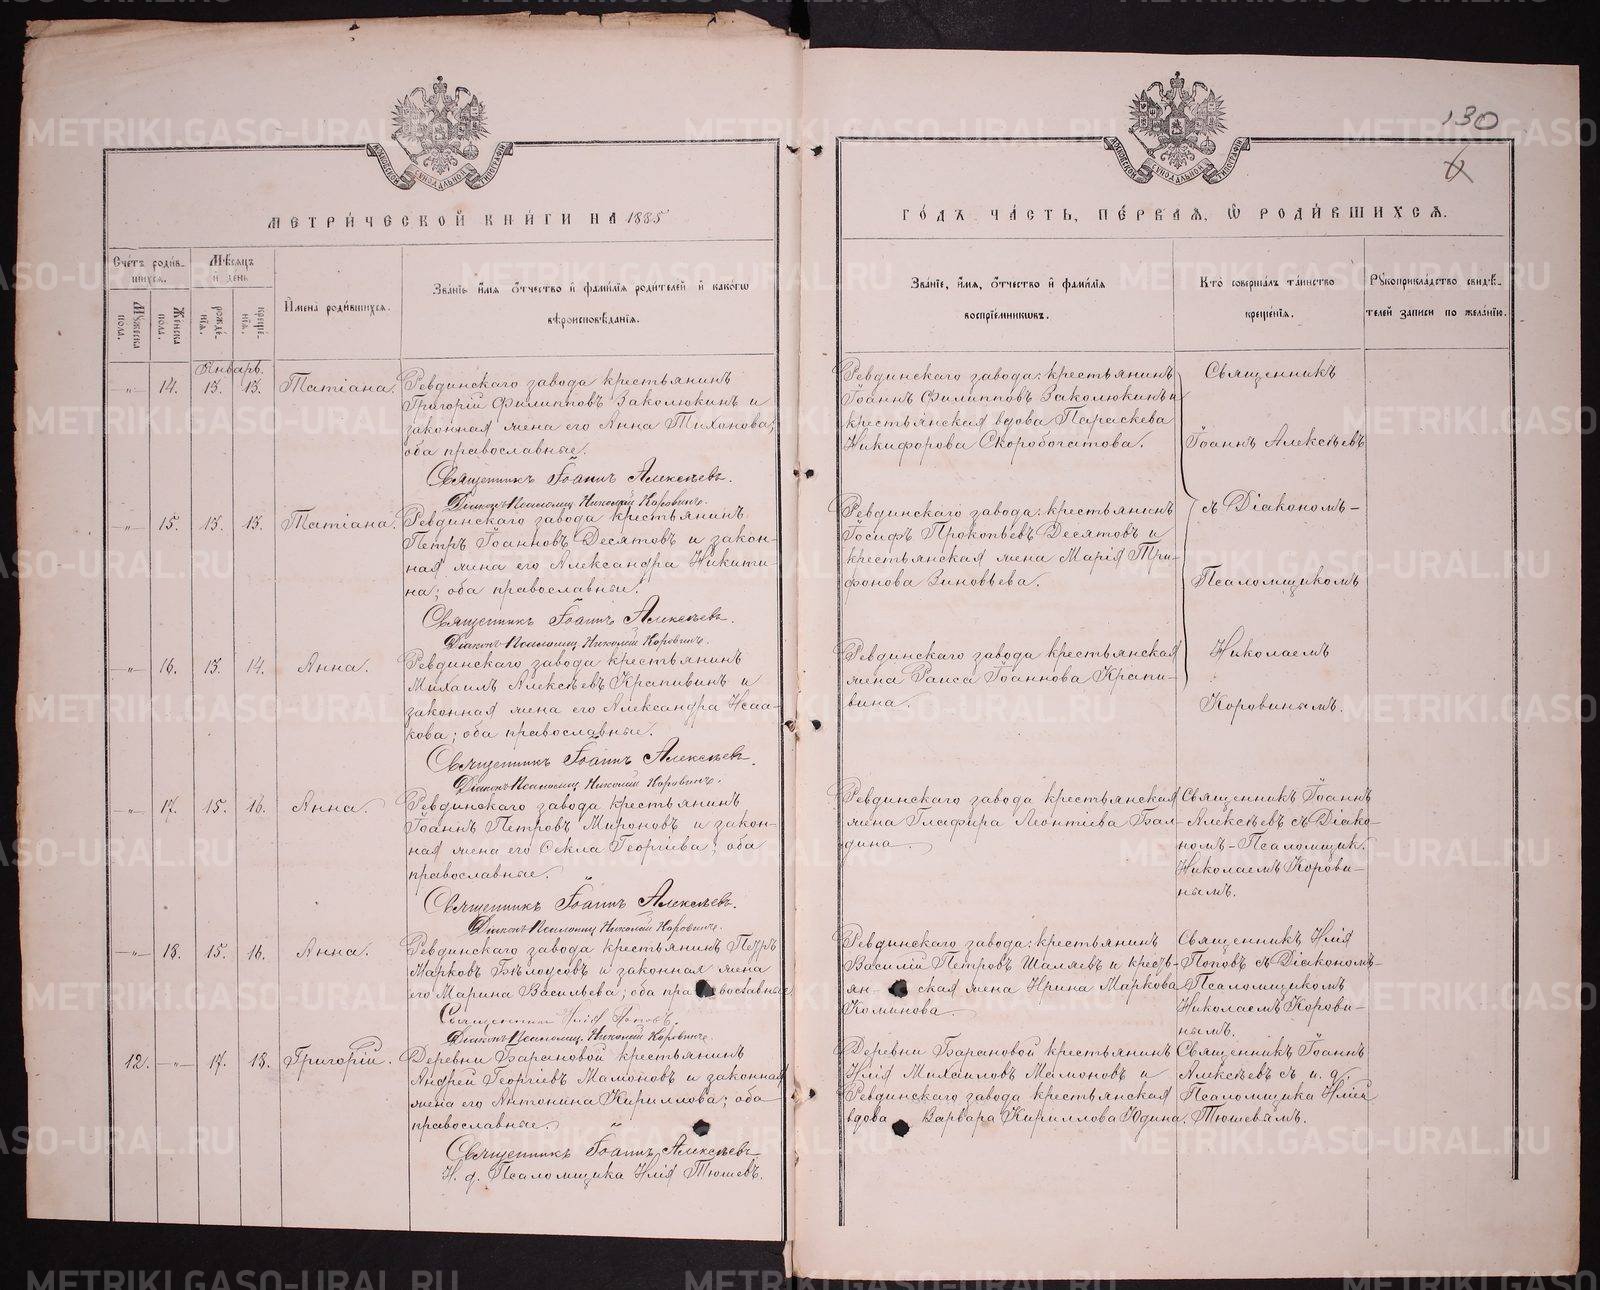 130
МЕТРИЧЕСКОЙ КНИГИ НА 1885
ГОДЪ ЧАСТЬ, ПЕРВАЯ, Ѽ РОДИВШИХСЯ.
Счетъ родив-
шихся.
Мѣсяцъ
и день
Мужеска
пола.
Женска
пола.
рожде-
нія.
креще-
нія.
Имена родившихся.
Званіе имя отчество и фамилія родителей и какогѡ
вѣроисповѣданія.
Званіе, имя, отчество и фамилія
воспріемникѡвъ.
Кто совершалъ таинство
крещенія.
Рукоприкладство свидѣ-
телей записи по желанію.
Январь.
-„- 14. 13. 13. Татіана.
Ревдинскаго завода крестьянинъ
Григорій Филипповъ Заколюкинъ и
законная жена его Анна Тихонова;
оба православные.
Священникъ Іоаннъ Алексѣевъ.
Діаконъ-Псаломщ. Николай Коровинъ.
Ревдинскаго завода: крестьянинъ
Іоаннъ Филипповъ Заколюкинъ и
крестьянская вдова Параскева
Никифорова Скоробогатова.
Священникъ
Іоаннъ Алексѣевъ
съ Діакономъ-
Псаломщикомъ
Николаемъ
Коровинымъ.
-„- 15. 13. 13. Татіана.
Ревдинскаго завода крестьянинъ
Петръ Іоанновъ Десятовъ и закон-
ная жена его Александра Никити-
на; оба православные.
Священникъ Іоаннъ Алексѣевъ.
Діаконъ-Псаломщ. Николай Коровинъ.
Ревдинскаго завода: крестьянинъ
Іосифъ Прокопьевъ Десятовъ и
крестьянская жена Марія Три-
фонова Зиновьева.
-„- 16. 13. 14. Анна.
Ревдинскаго завода крестьянинъ
Михаилъ Алексѣевъ Крапивинъ и
законная жена его Александра Исаа-
кова; оба православные.
Священникъ Іоаннъ Алексѣевъ.
Діаконъ-Псаломщ. Николай Коровинъ.
Ревдинскаго завода крестьянская
жена Раиса Іоаннова Крапи-
вина.
-„- 17. 15. 16. Анна.
Ревдинскаго завода крестьянинъ
Іоаннъ Петровъ Мироновъ и закон-
ная жена его Секла Георгіева; оба
православные.
Священникъ Іоаннъ Алексѣевъ.
Діаконъ-Псаломщ. Николай Коровинъ.
Ревдинскаго завода крестьянская
жена Глафира Леонтіева Бал-
дина.
Священникъ Іоаннъ
Алексѣевъ съ Діако-
номъ-Псаломщик.
Николаемъ Корови-
нымъ.
-„- 18. 15. 16. Анна.
Ревдинскаго завода крестьянинъ Петръ
Марковъ Бѣлоусовъ и законная жена
его Марина Васильева; оба православные
Священникъ Илія Поповъ.
Діаконъ-Псаломщ. Николай Коровинъ.
Ревдинскаго завода: крестьянинъ
Василій Петровъ Шаляевъ и кресть-
ян- ская жена Ирина Маркова
Комина.
Священникъ Илія
Поповъ съ Діакономъ-
Псаломщикомъ
Николаемъ Корови-
нымъ.
12. -„- 17. 18. Григорій.
Деревни Барановой крестьянинъ
Андрей Георгіевъ Мамоновъ и законная
жена его Антонина Кириллова; оба
православные.
Священникъ Іоаннъ Алексѣевъ.
И. д. Псаломщика Илія Тюшевъ.
Деревни Барановой крестьянинъ
Илія Михаиловъ Мамоновъ и
Ревдинскаго завода крестьянская
вдова Варвара Кириллова Юдина.
Священникъ Іоаннъ
Алексѣевъ съ и. д.
Псаломщика Иліей
Тюшевымъ.
METRIKI.GASO-URAL.RU